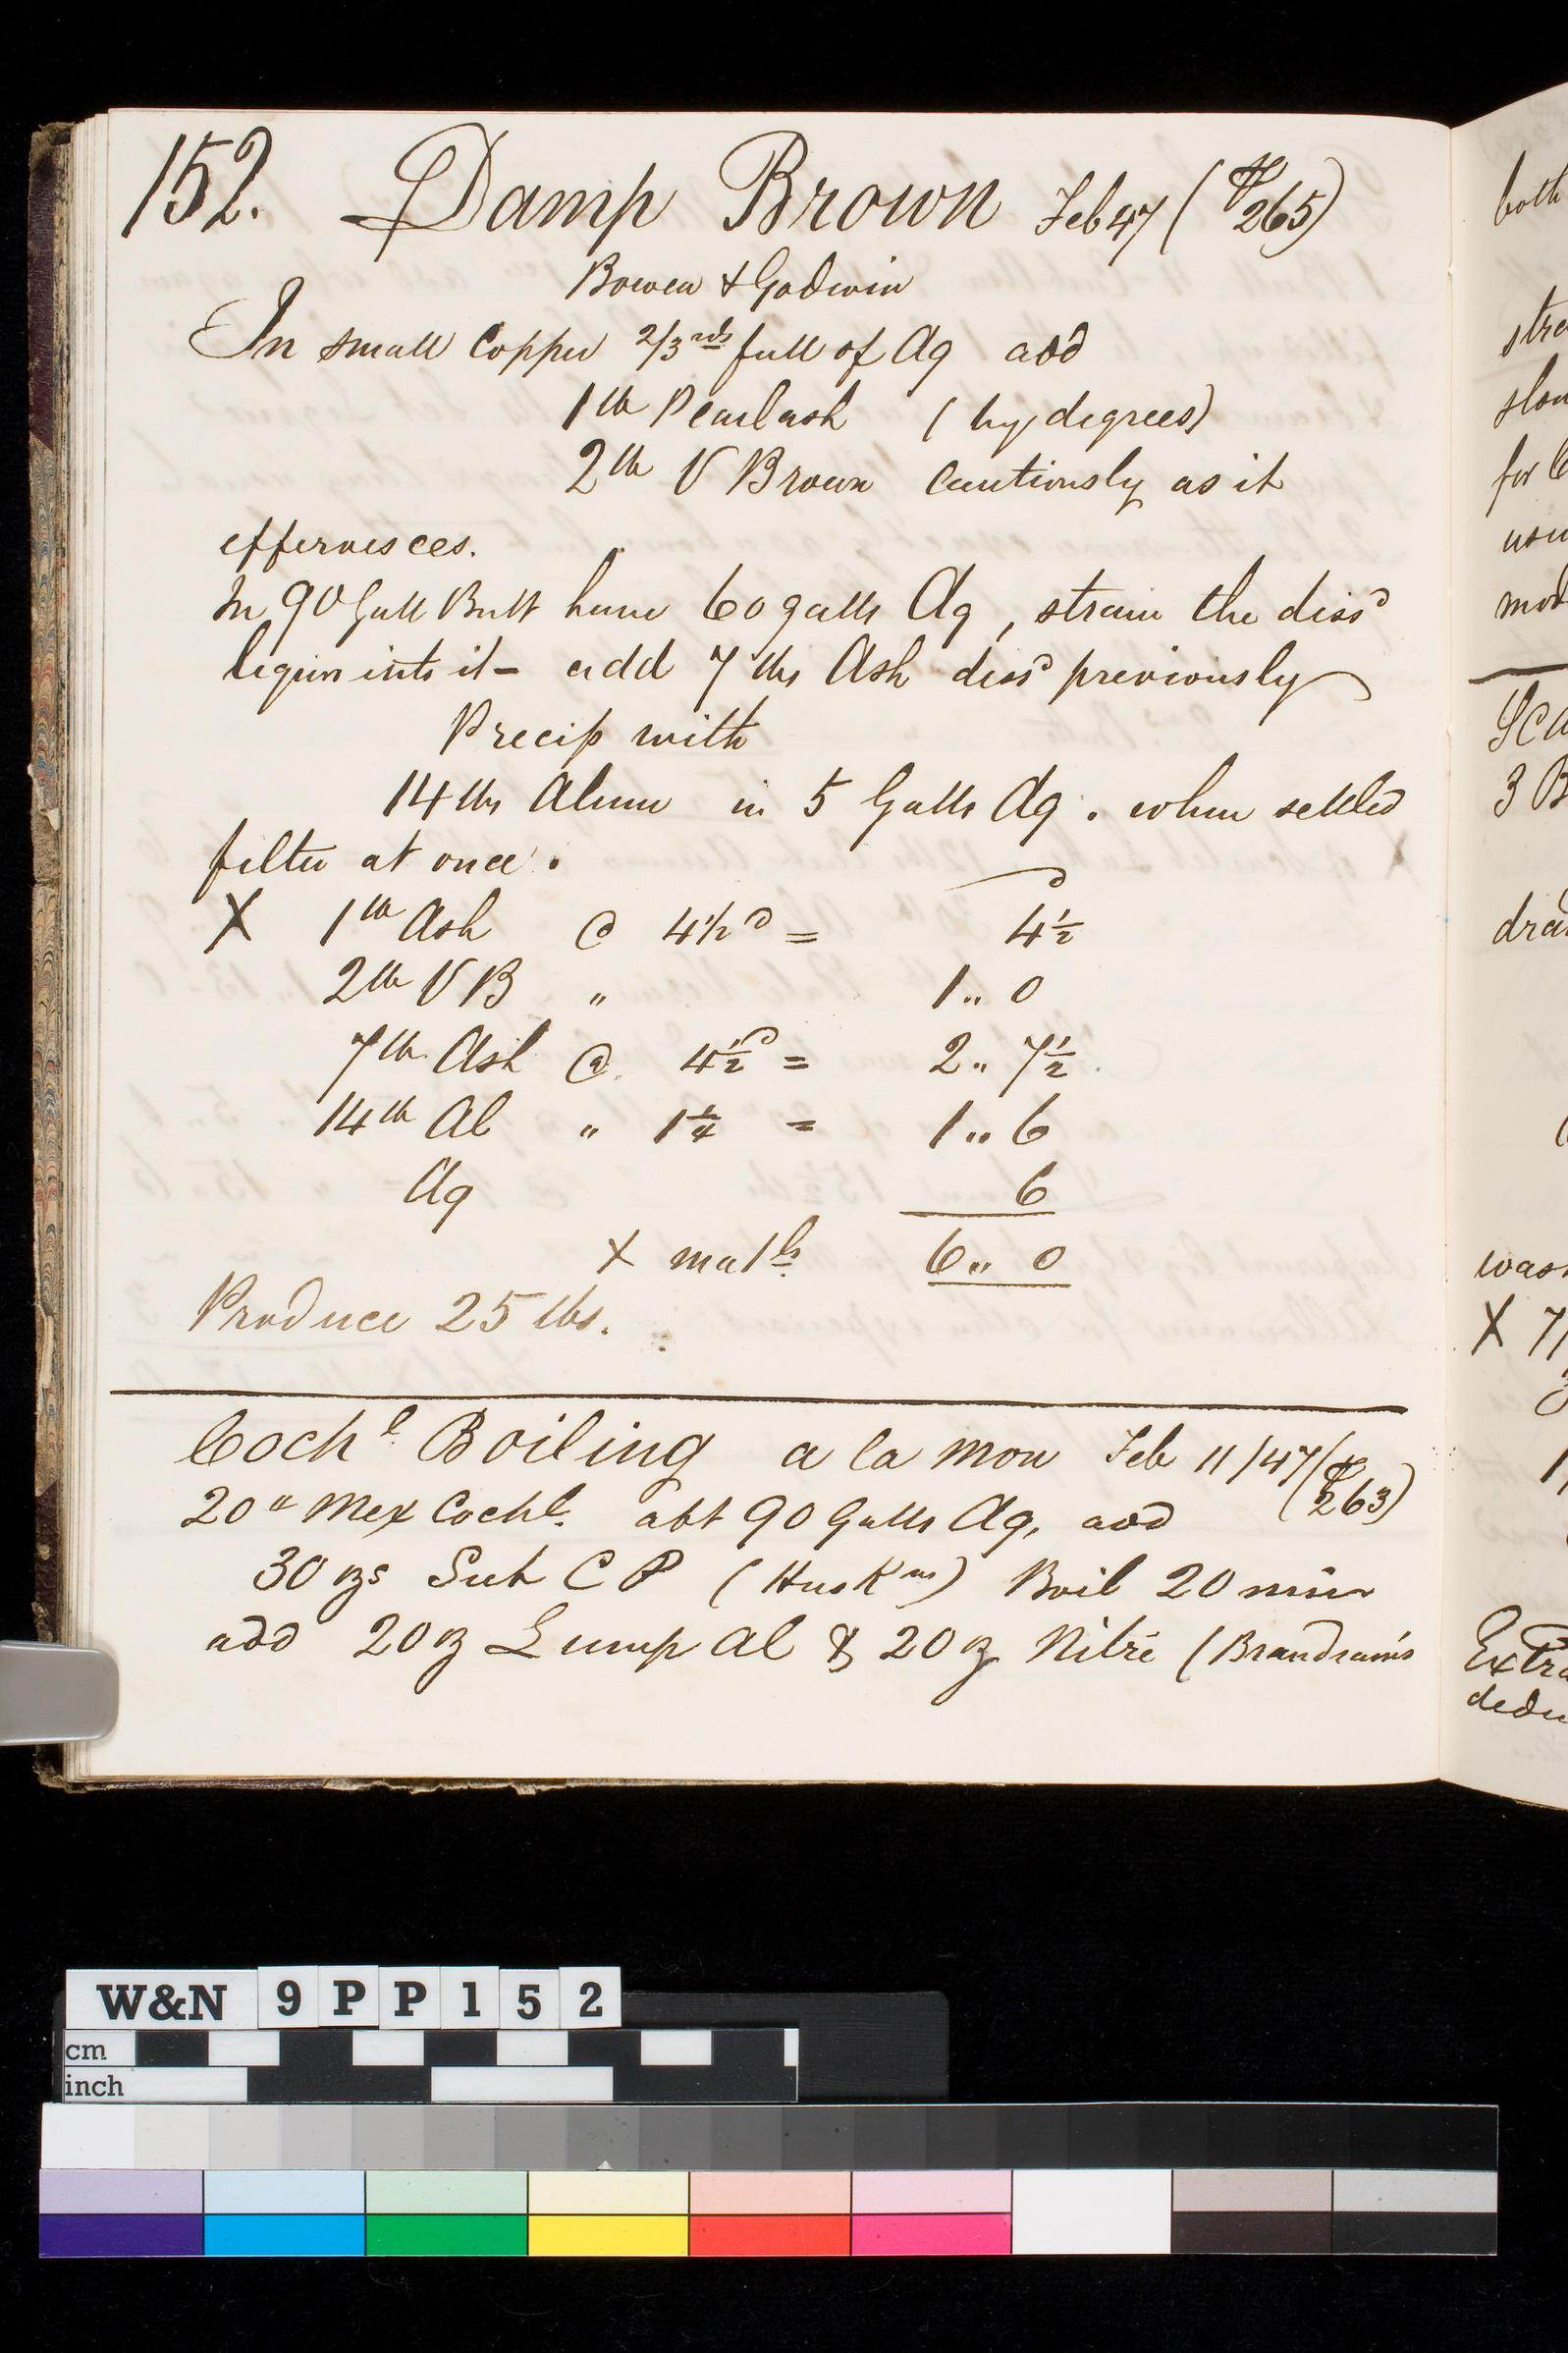 152. Damp Brown Feb 47 (P 265)
Bowen & Godwin
In small Copper 2/3rds full of Aq add
1 lb Pearlash (by degrees)
2 lb V Brown Cautiously as it
effervesces.
In 90 Gall Butt have 60 galls Aq, strain the dissd
liquor into it - add 7 lbs Ash dissd previously
Precip with
14 lbs Alum in 5 Galls Aq. when settled
filter at once.
X 1 lb Ash @ 4½ d = 4½
2 lb V B " 1 " 0
7 lb Ash @ 4½ d = 2 " 7½
14 lb Al " 1¼ = 1 " 6
Aq 6
X matls 6 " 0
Produce 25 lbs.
Cochl Boiling a la mon Feb 11/47 (P 263)
20 " Mex Cochl. abt 90 Galls Aq, add
30 ozs Sub C P (Huskns) Boil 20 min
add 20 oz Lump Al & 20 oz Nitre (Brandram's
both
for 6
mod
3 B
X 7/
Extra
W&N 9PP152
cm
inch